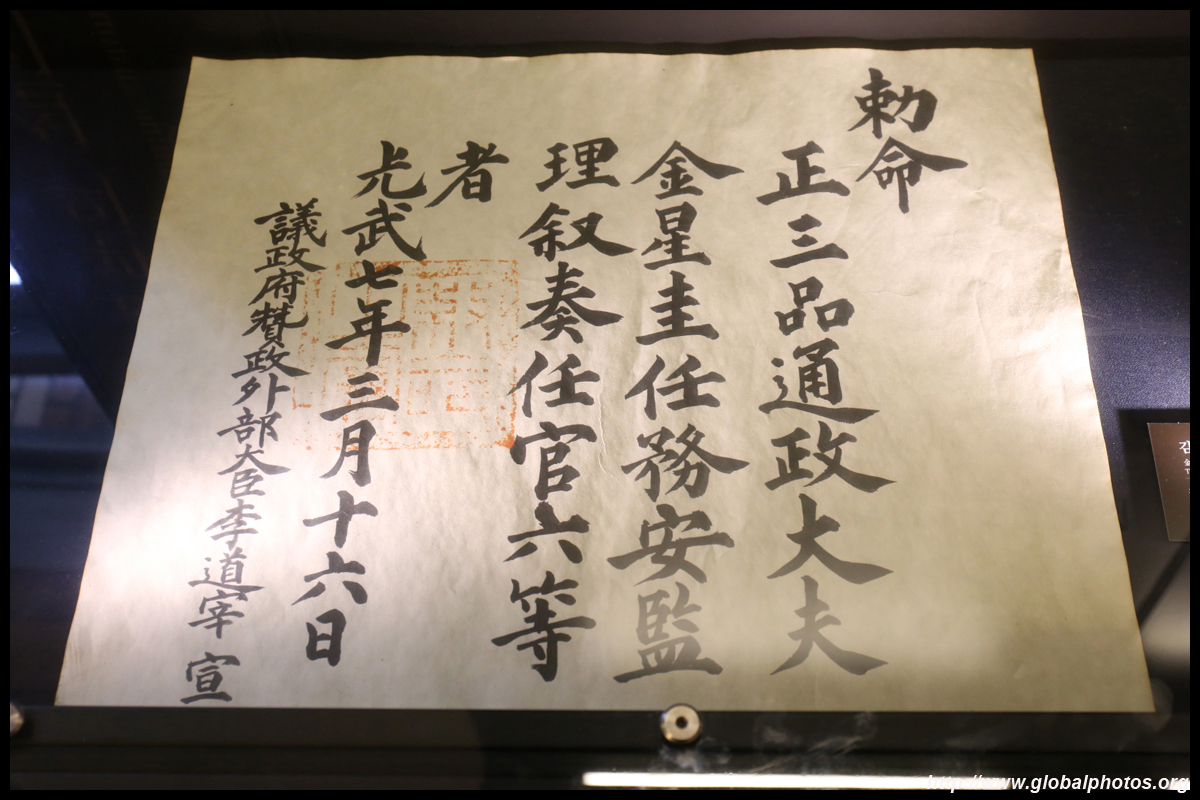 勅命
正三品通政大夫
金星圭任務安監
理叙奏任官六等
者
光武七年三月十六日
議政府贊政外部大臣李道宰 宣
http://www.globalphotos.org